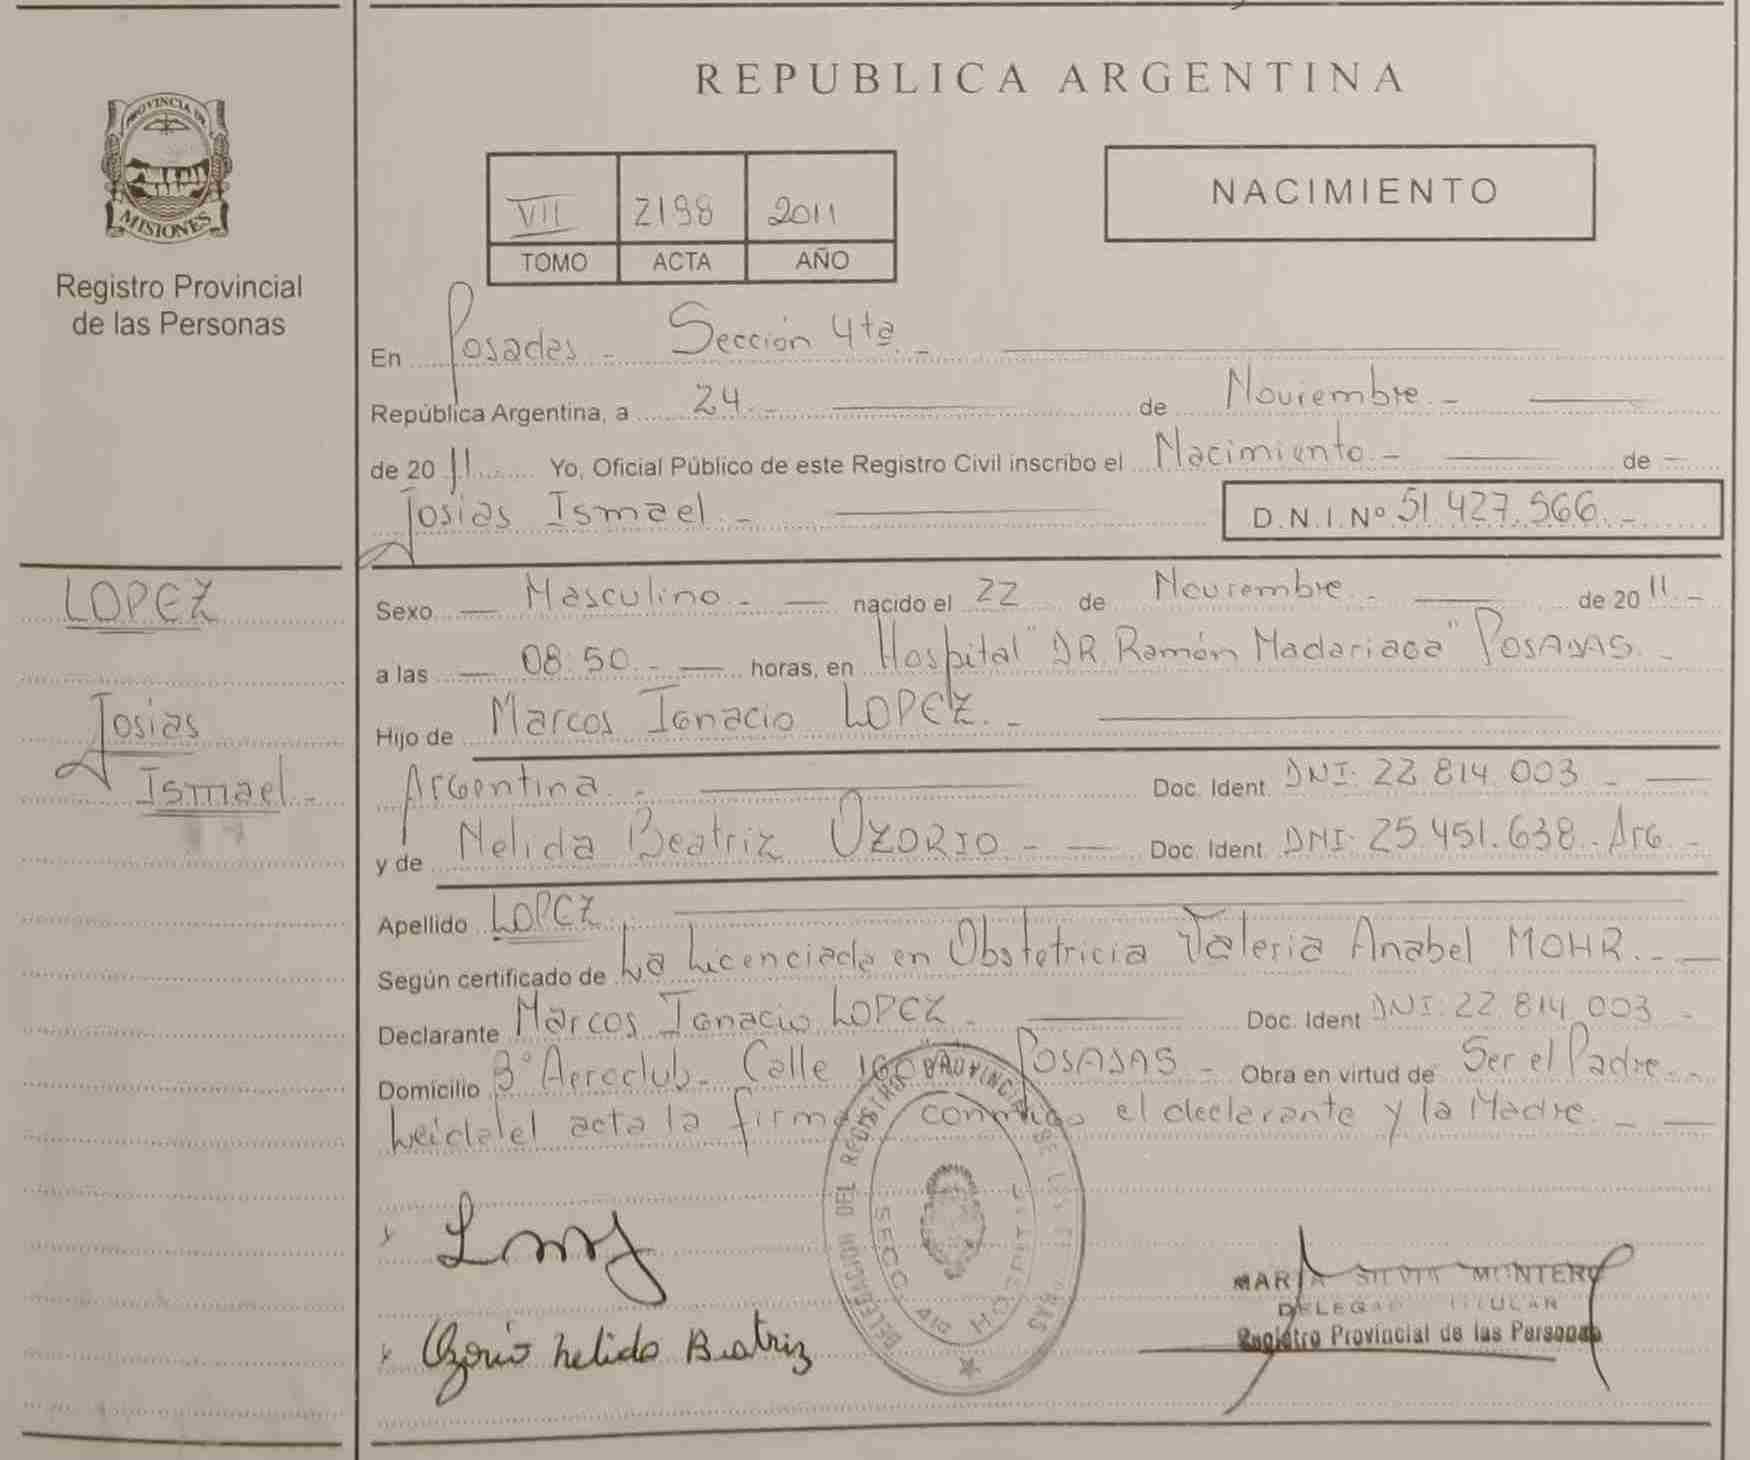 PROVINCIA DE
MISIONES
Registro Provincial
de las Personas
LOPEZ
Josias
Ismael.-
REPUBLICA ARGENTINA
VII 2198 2011
TOMO ACTA AÑO
NACIMIENTO
En Posadas - Sección 4ta.-
República Argentina, a 24.- de Noviembre.-
de 2011 Yo, Oficial Público de este Registro Civil inscribo el Nacimiento.- de -
Josias Ismael.- D.N.I.Nº 51.427.566.-
Sexo Masculino.- nacido el 22 de Noviembre.- de 2011.-
a las 08:50.- horas, en Hospital "DR. Ramón Madariaga" POSADAS.-
Hijo de Marcos Ignacio LOPEZ.-
Argentina.- Doc. Ident. DNI: 22.814.003.-
y de Nelida Beatriz OZORIO.- Doc. Ident. DNI: 25.451.638.- Arg.-
Apellido LOPEZ
Según certificado de La Licenciada en Obstetricia Valeria Anabel MOHR.-
Declarante Marcos Ignacio LOPEZ.- Doc. Ident DNI: 22.814.003.-
Domicilio Bº Aeroclub- Calle POSADAS - Obra en virtud de Ser el Padre.-
Leida el acta la firma conmigo el declarante y la Madre.-
DELEGACION DEL REGISTRO PROVINCIAL DE LAS PERSONAS
SECC. HOSPITAL
Ozorio nelida Beatriz
MARIA SILVIA MONTERO
DELEGADA TITULAR
Registro Provincial de las Personas